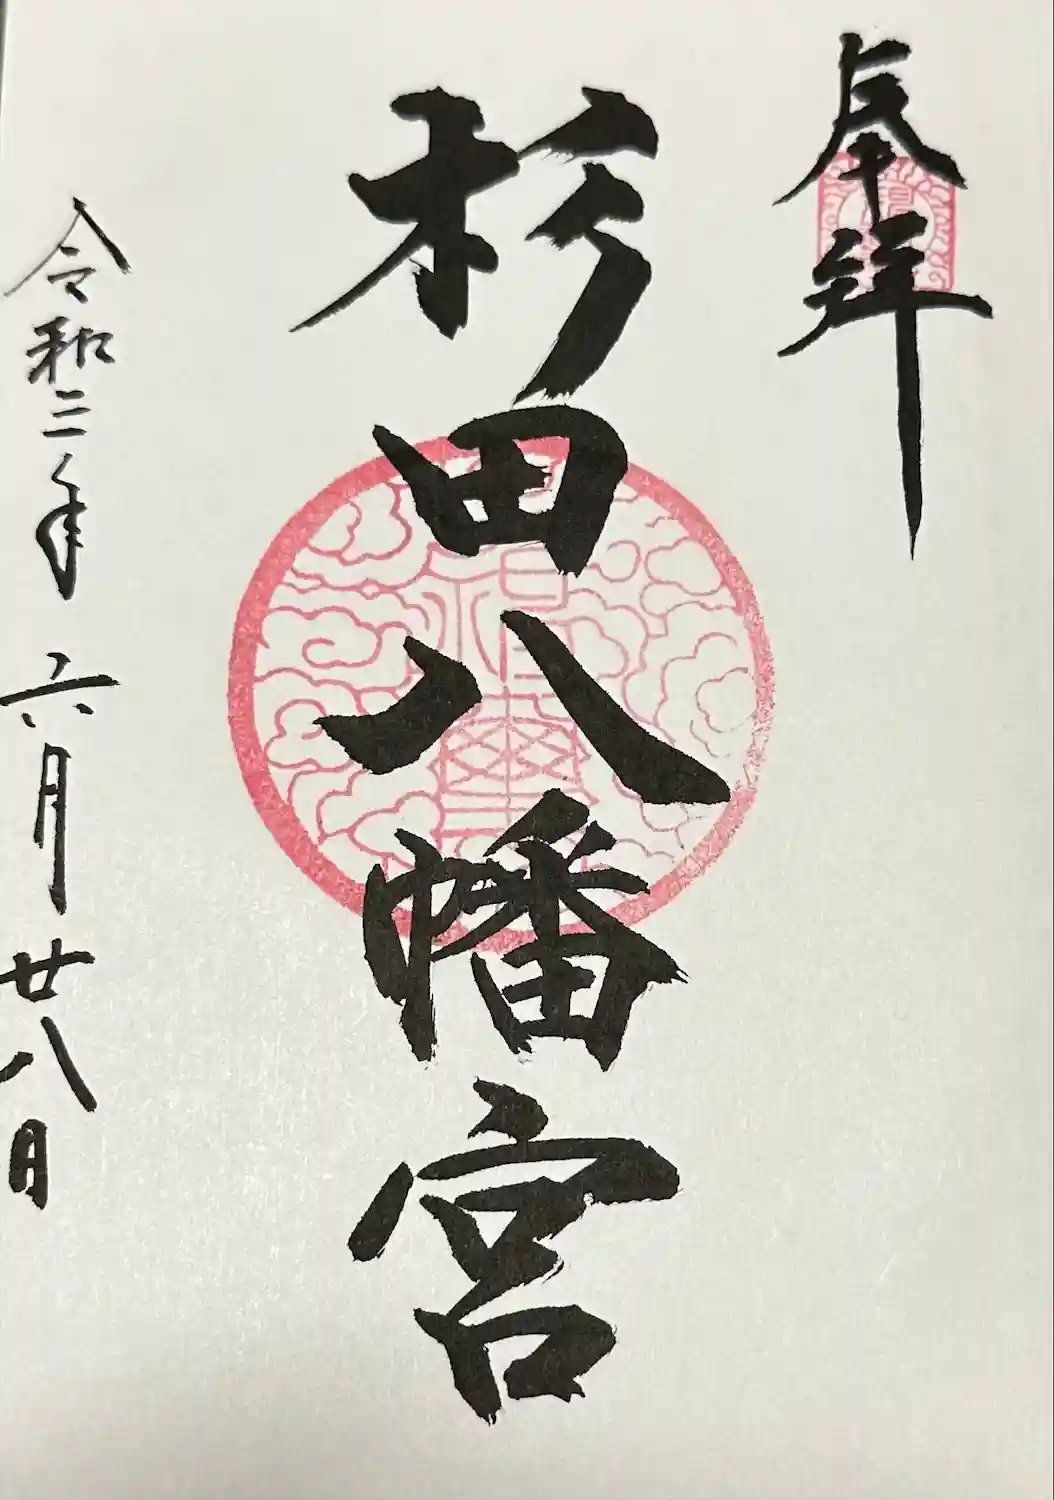 奉拝
杉田八幡宮
令和三年六月廿八日